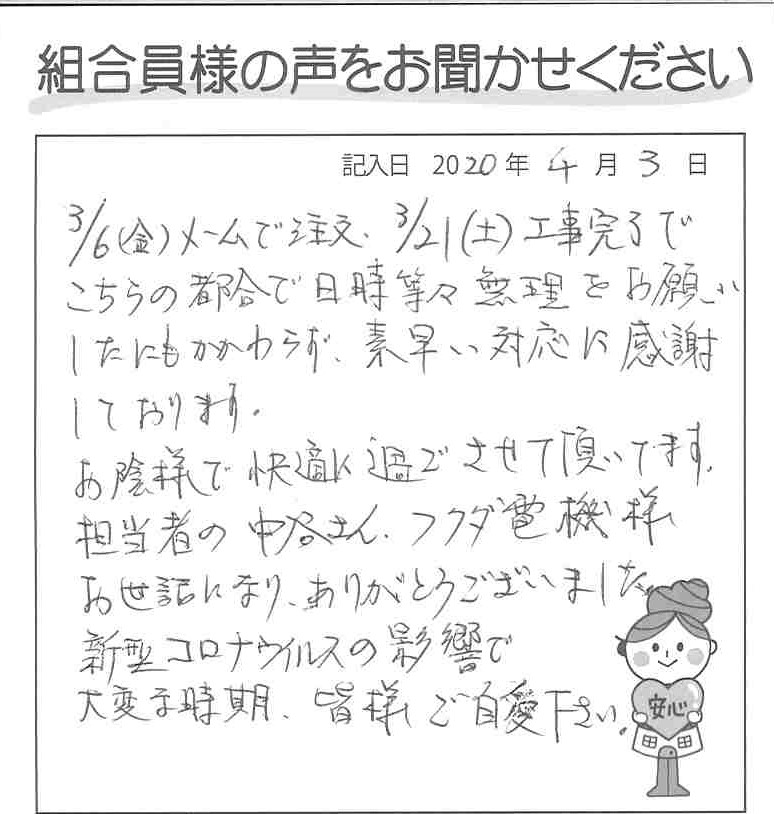 組合員様の声をお聞かせください
記入日 2020年 4月 3日
3/6(金)メールで注文、3/21(土)工事完了で
こちらの都合で日時等々無理をお願い
したにもかかわらず、素早い対応に感謝
しております。
お陰様で快適に過ごさせて頂いてます。
担当者の中谷さん、フクダ電機様
お世話になり、ありがとうございました。
新型コロナウイルスの影響で
大変な時期、皆様ご自愛下さい。
安心